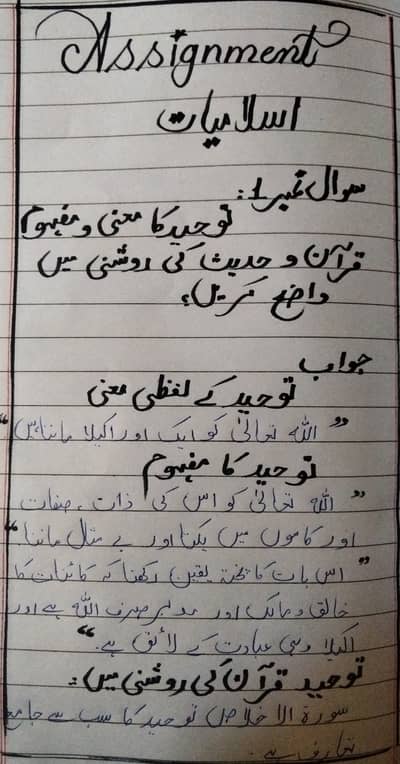 Assignment
اسلامیات
سوال نمبر 1:
توحید کا معنی و مفہوم
قرآن و حدیث کی روشنی میں
واضح کریں؟
جواب
توحید کے لفظی معنی
” اللہ تعالیٰ کو ایک اور اکیلا ماننا ہیں “
توحید کا مفہوم
” اللہ تعالیٰ کو اس کی ذات ، صفات
اور کاموں میں یکتا اور بے مثال ماننا “
” اس بات کا پختہ یقین رکھنا کہ کائنات کا
خالق و مالک اور مدبر صرف اللہ ہے اور
اکیلا وہی عبادت کے لائق ہے “
توحید قرآن کی روشنی میں:
سورۃ الاخلاص توحید کا سب سے جامع
تعارف ہے۔